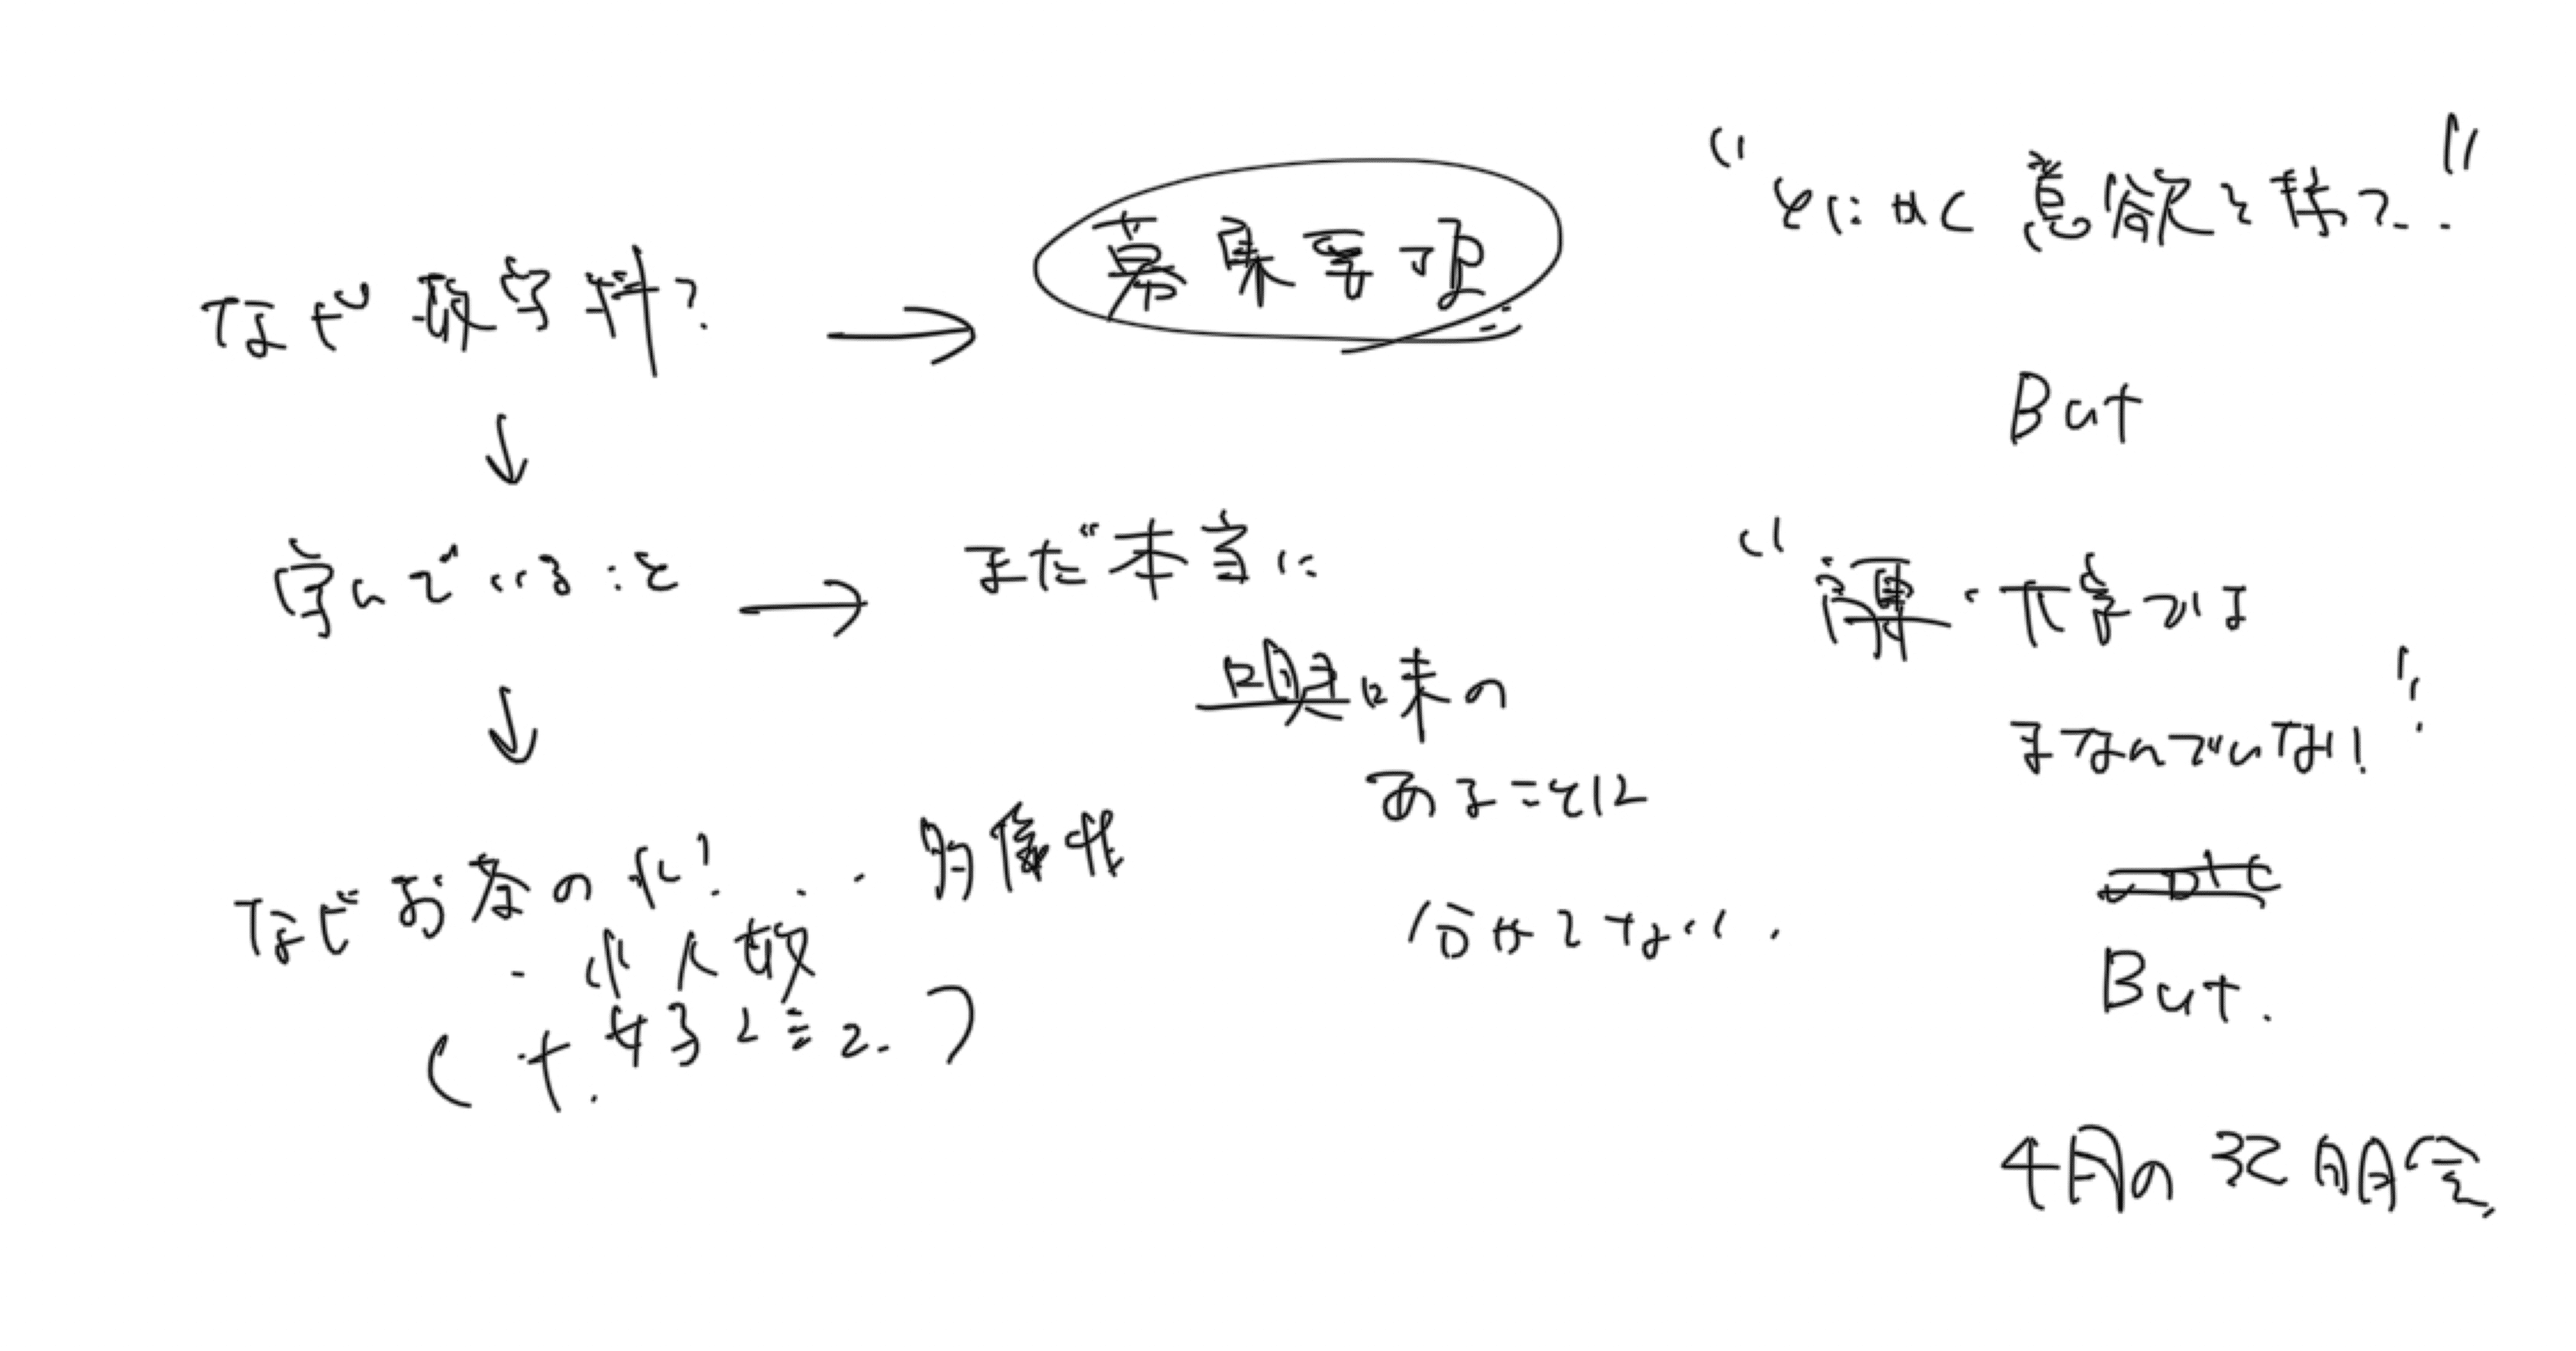 なぜ数学科?
→
募集要項
↓
学んでいること
→
まだ本当に
興味の
あることに
分かてない.
↓
なぜお茶の水?
・多様性
・少人数
(+.女子と言
)
"とにかく意欲を持って.."
But
"高専・大学では
まなんでいない!"
But.
4月の説明会